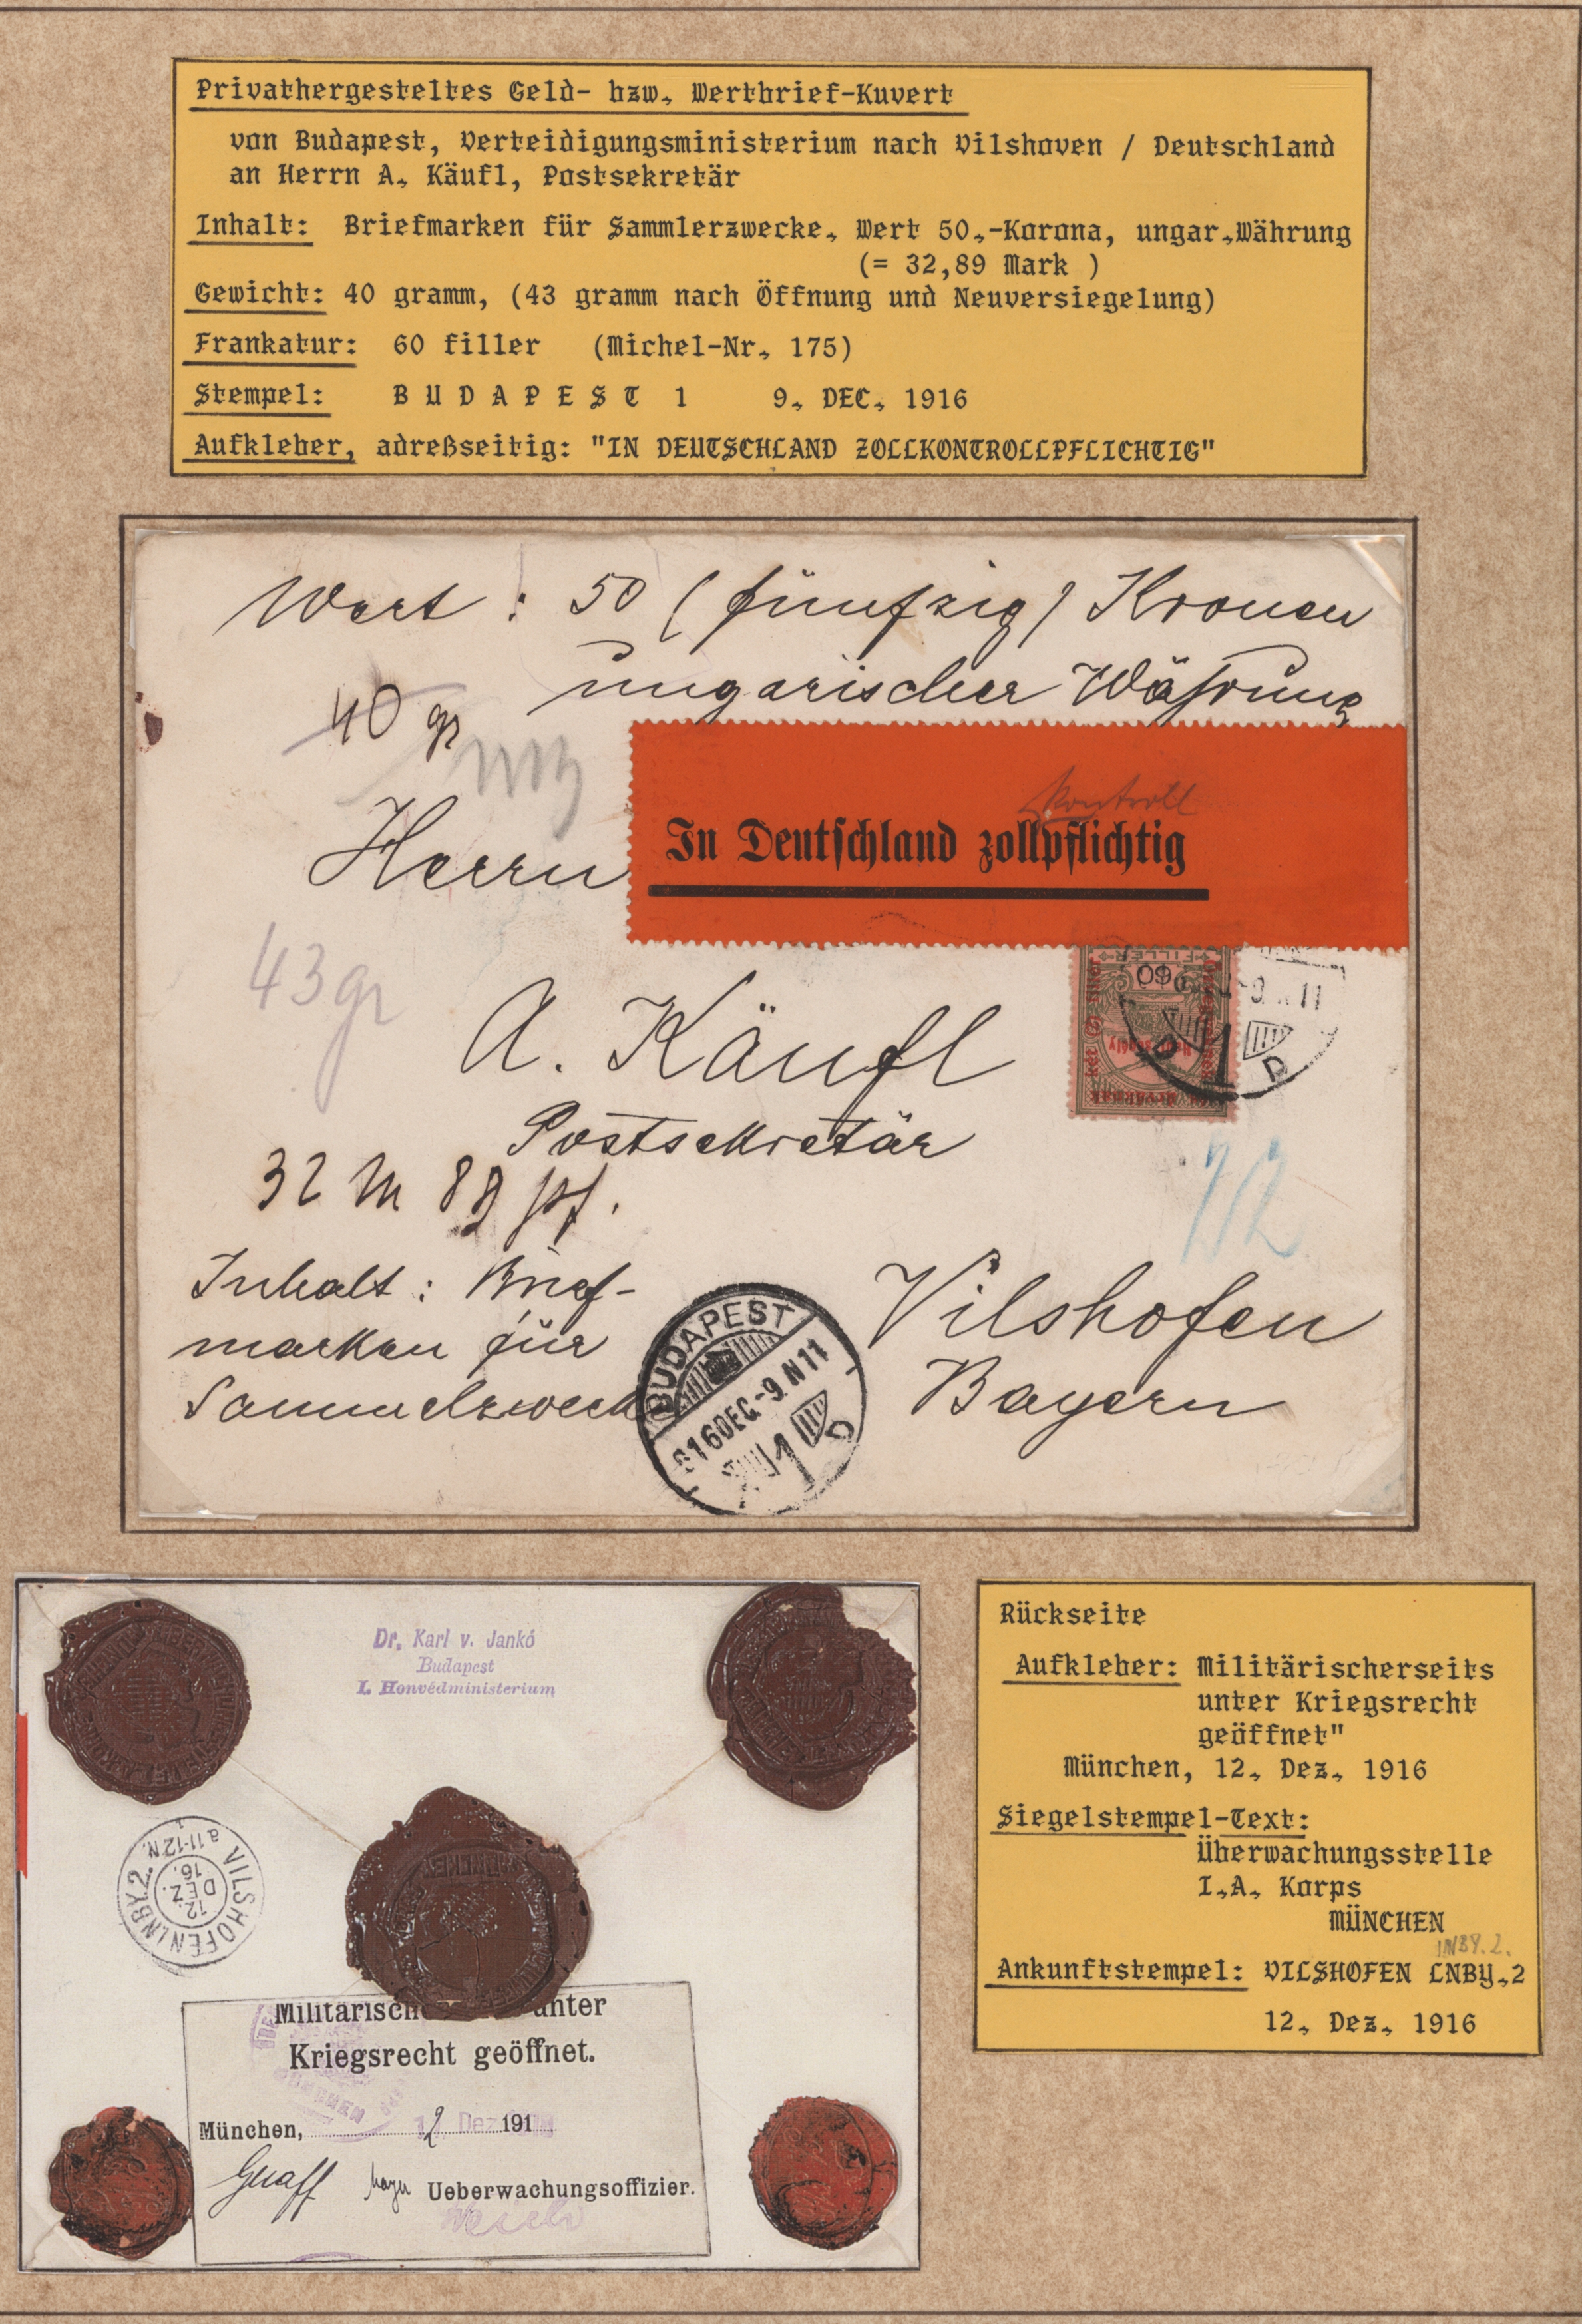 Privathergesteltes Geld- bzw. Wertbrief-Kuvert
von Budapest, Verteidigungsministerium nach Vilshoven / Deutschland
an Herrn A. Käufl, Postsekretär
Inhalt: Briefmarken für Sammlerzwecke. Wert 50.-Korona, ungar.Währung
(= 32,89 Mark )
Gewicht: 40 gramm, (43 gramm nach Öffnung und Neuversiegelung)
Frankatur: 60 filler (Michel-Nr. 175)
Stempel: B U D A P E S T 1 9. DEC. 1916
Aufkleber, adreßseitig: "IN DEUTSCHLAND ZOLLKONTROLLPFLICHTIG"
Wert : 50 (fünfzig) Kronen
ungarischer Währung
40 gr
Kontroll
In Deutschland zollpflichtig
Herrn
43 gr
FILLER
60
A. Käufl
Postsekretär
32 M 89 pf.
Inhalt : Brief-
marken für
Sammelzweck
BUDAPEST
916 DEC -9 N11
1 D
Vilshofen
Bayern
Dr. Karl v. Jankó
Budapest
I. Honvédministerium
VILSHOFEN(NBY.2
a 11-12 N.
12.
DEZ.
16.
Militärisch unter
Kriegsrecht geöffnet.
München, 12 Dez 191
Ueberwachungsoffizier.
Rückseite
Aufkleber: Militärischerseits
unter Kriegsrecht
geöffnet"
München, 12. Dez. 1916
Siegelstempel-Text:
Überwachungsstelle
I.A. Korps
MÜNCHEN
NBY.2.
Ankunftstempel: VILSHOFEN LNBY.2
12. Dez. 1916